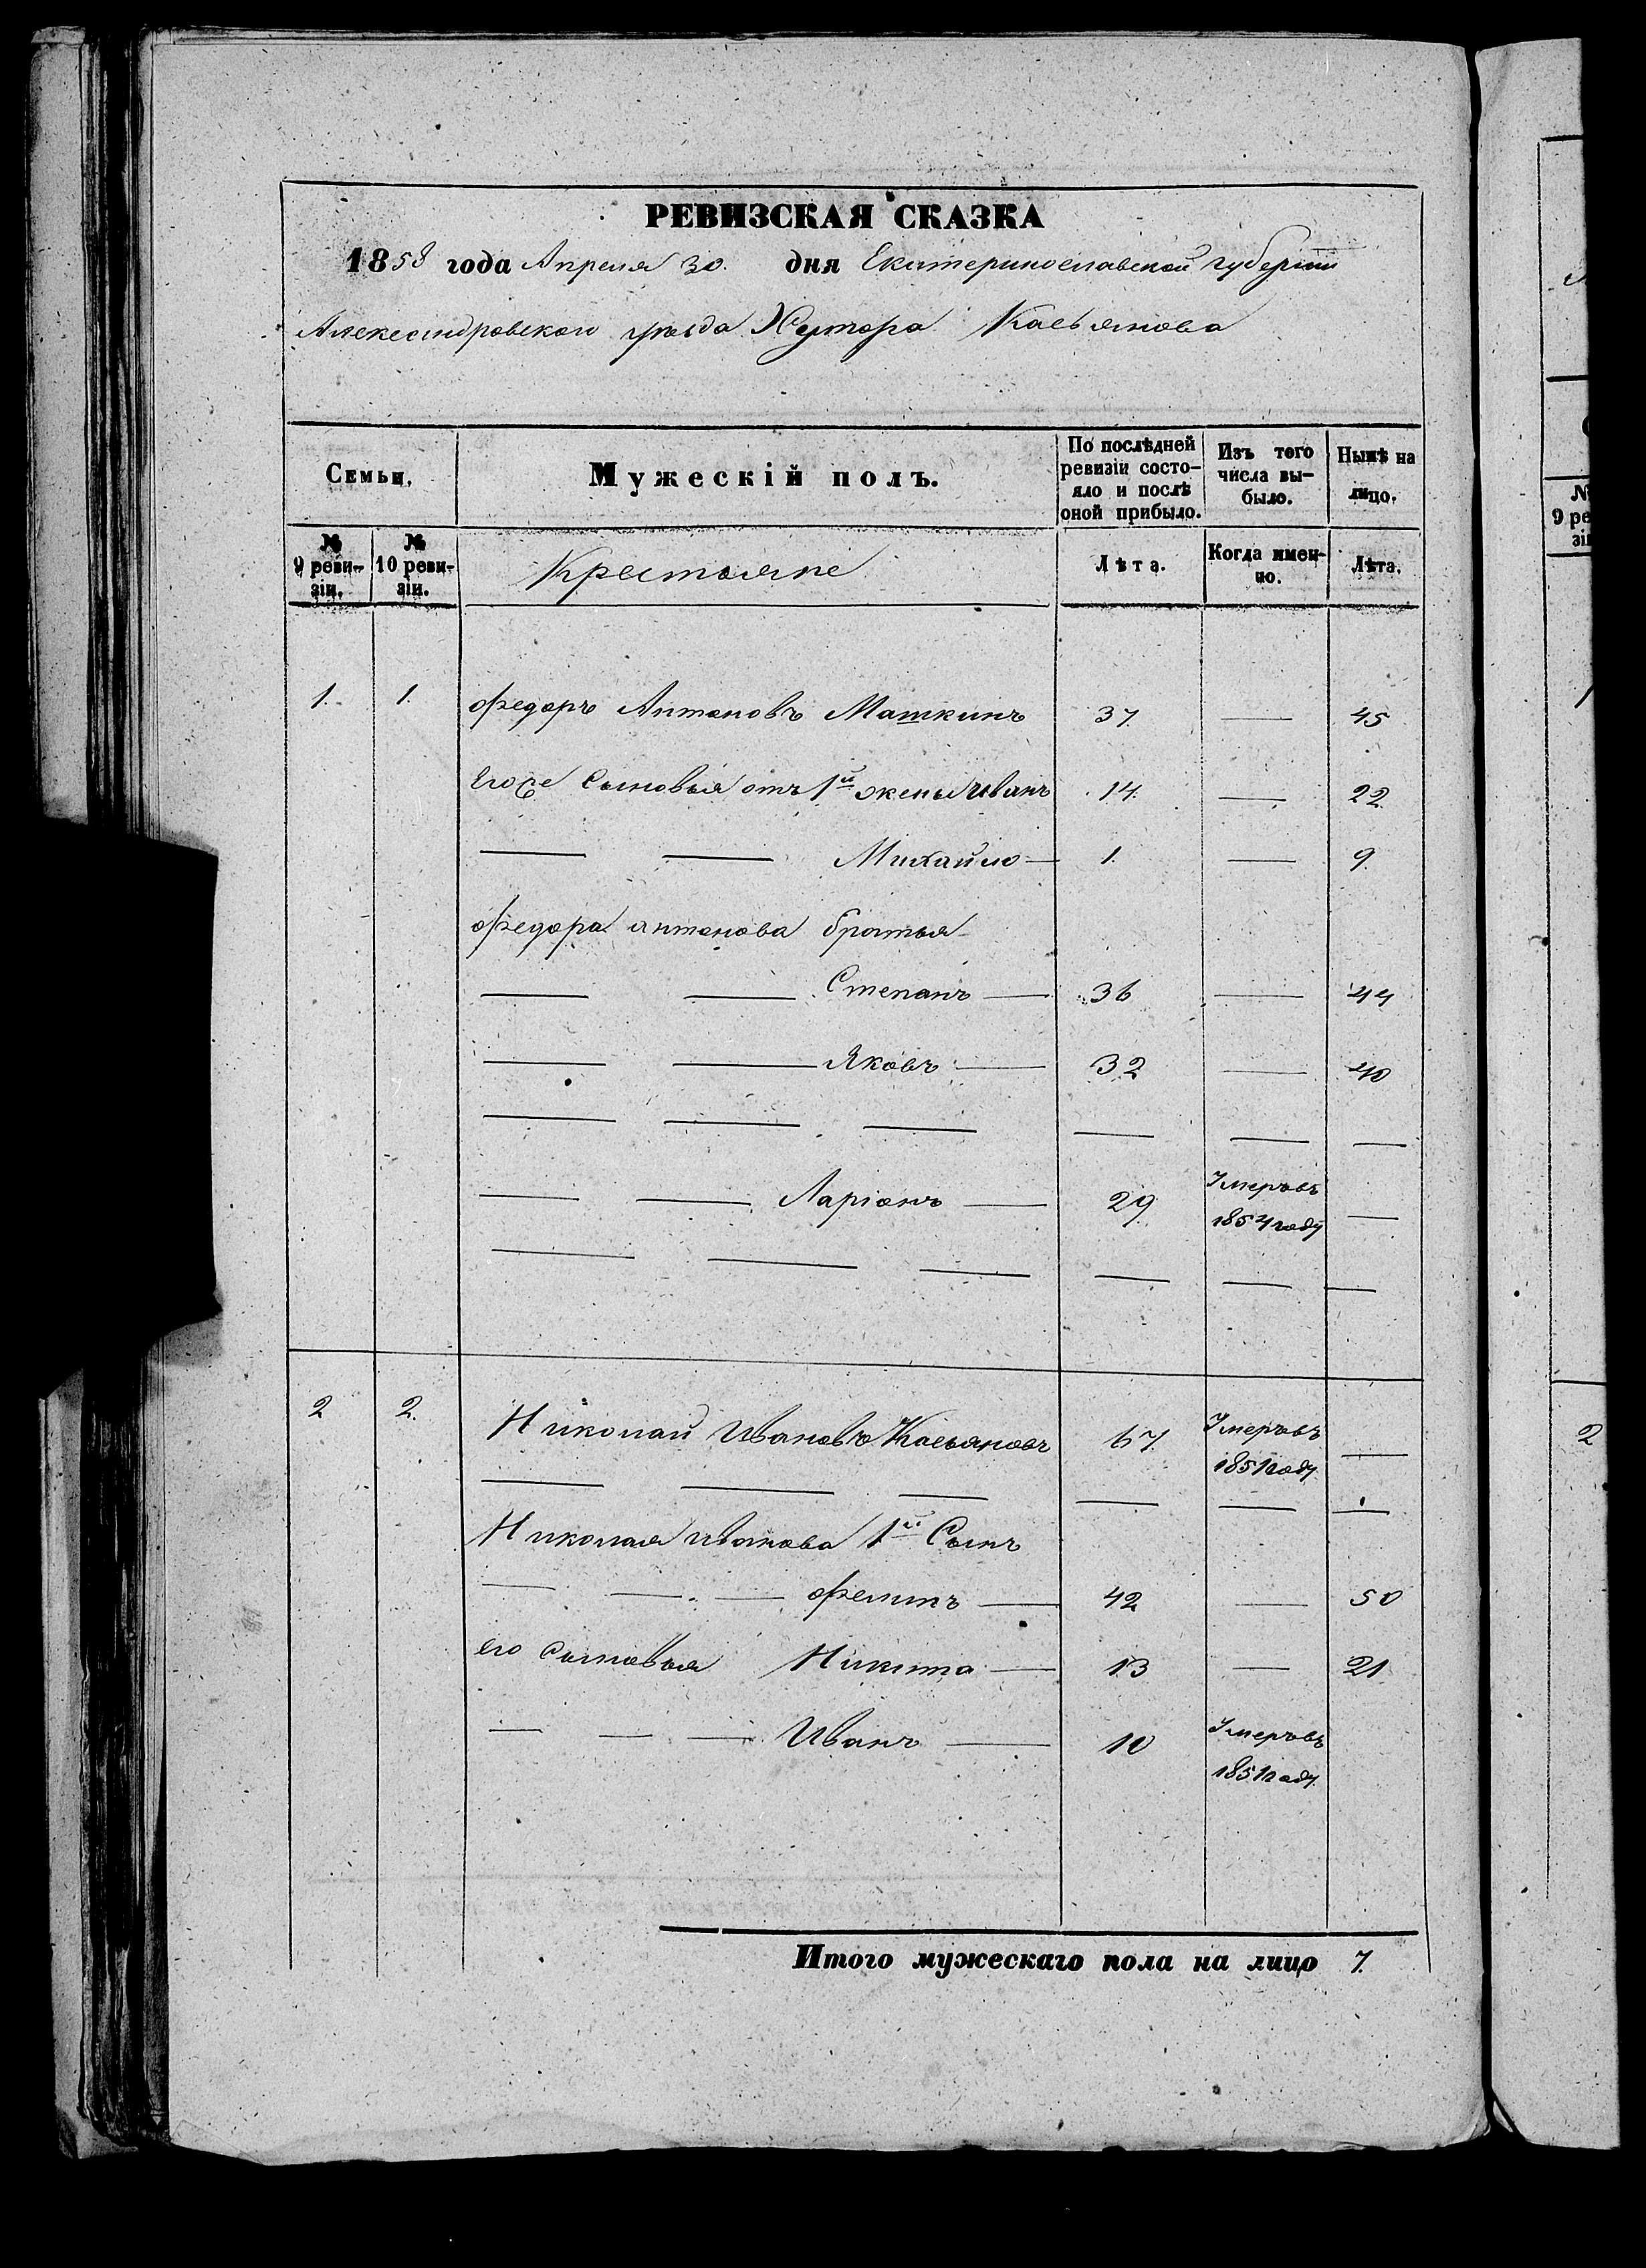 РЕВИЗСКАЯ СКАЗКА
1858 года Апреля 30. дня Екатеринославской губернии
Александровского уѣзда Хутора Касьянова
Семьи.
Мужескій полъ.
По послѣдней ревизіи состо-
яло и послѣ оной прибыло.
Изъ того числа вы-
было.
Нынѣ на лицо.
№ 9 реви-
зіи.
№ 10 реви-
зіи.
Крестьяне
Лѣта.
Когда имен-
но.
Лѣта.
1. 1. Федоръ Антоновъ Машкинъ 37 — 45
Его же Сыновья отъ 1й жены Иванъ 14. — 22
— — Михайло — 1. — 9.
Федора Антонова братья
— — Степанъ — 36 — 44
— — Яковъ — 32 — 40
— — — — — —
— — Ларіонъ — 29. Умеръ въ 1854 году —
— — — — — —
2 2. Николай Ивановъ Касьяновъ 67. Умеръ въ 1851 году —
— — — — — —
Николая Иванова 1й Сынъ
— — — Филипъ — 42 — 50
его Сыновья Никита — 13 — 21
— — — Иванъ — 10 Умеръ въ 1851 году.
Итого мужескаго пола на лицо 7.
№
9 ре
зі
2